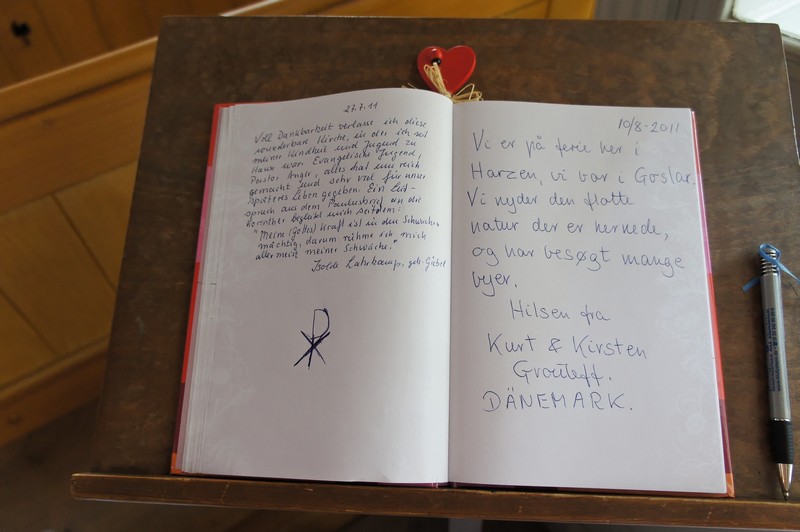 27.7.11
Voll Dankbarkeit verlasse ich diese
wunderbare Kirche, in der ich seit
meiner Kindheit und Jugend zu
Haus war. Evangelische Jugend,
Pastor Angler, alles hat mich reich
gemacht und sehr viel für unser
späteres Leben gegeben. Ein Leit-
spruch aus dem Paulusbrief an die
Korinther begleitet mich seitdem:
"Meine (Gottes) Kraft ist in den Schwachen
mächtig, darum rühme ich mich
aller meiner Schwäche."
Isolde Lahrkamp, geb. Giebel
10/8-2011
Vi er på ferie her i
Harzen, vi var i Goslar.
Vi nyder den flotte
natur der er hernede,
og har besøgt mange
byer.
Hilsen fra
Kurt & Kirsten
DÄNEMARK.